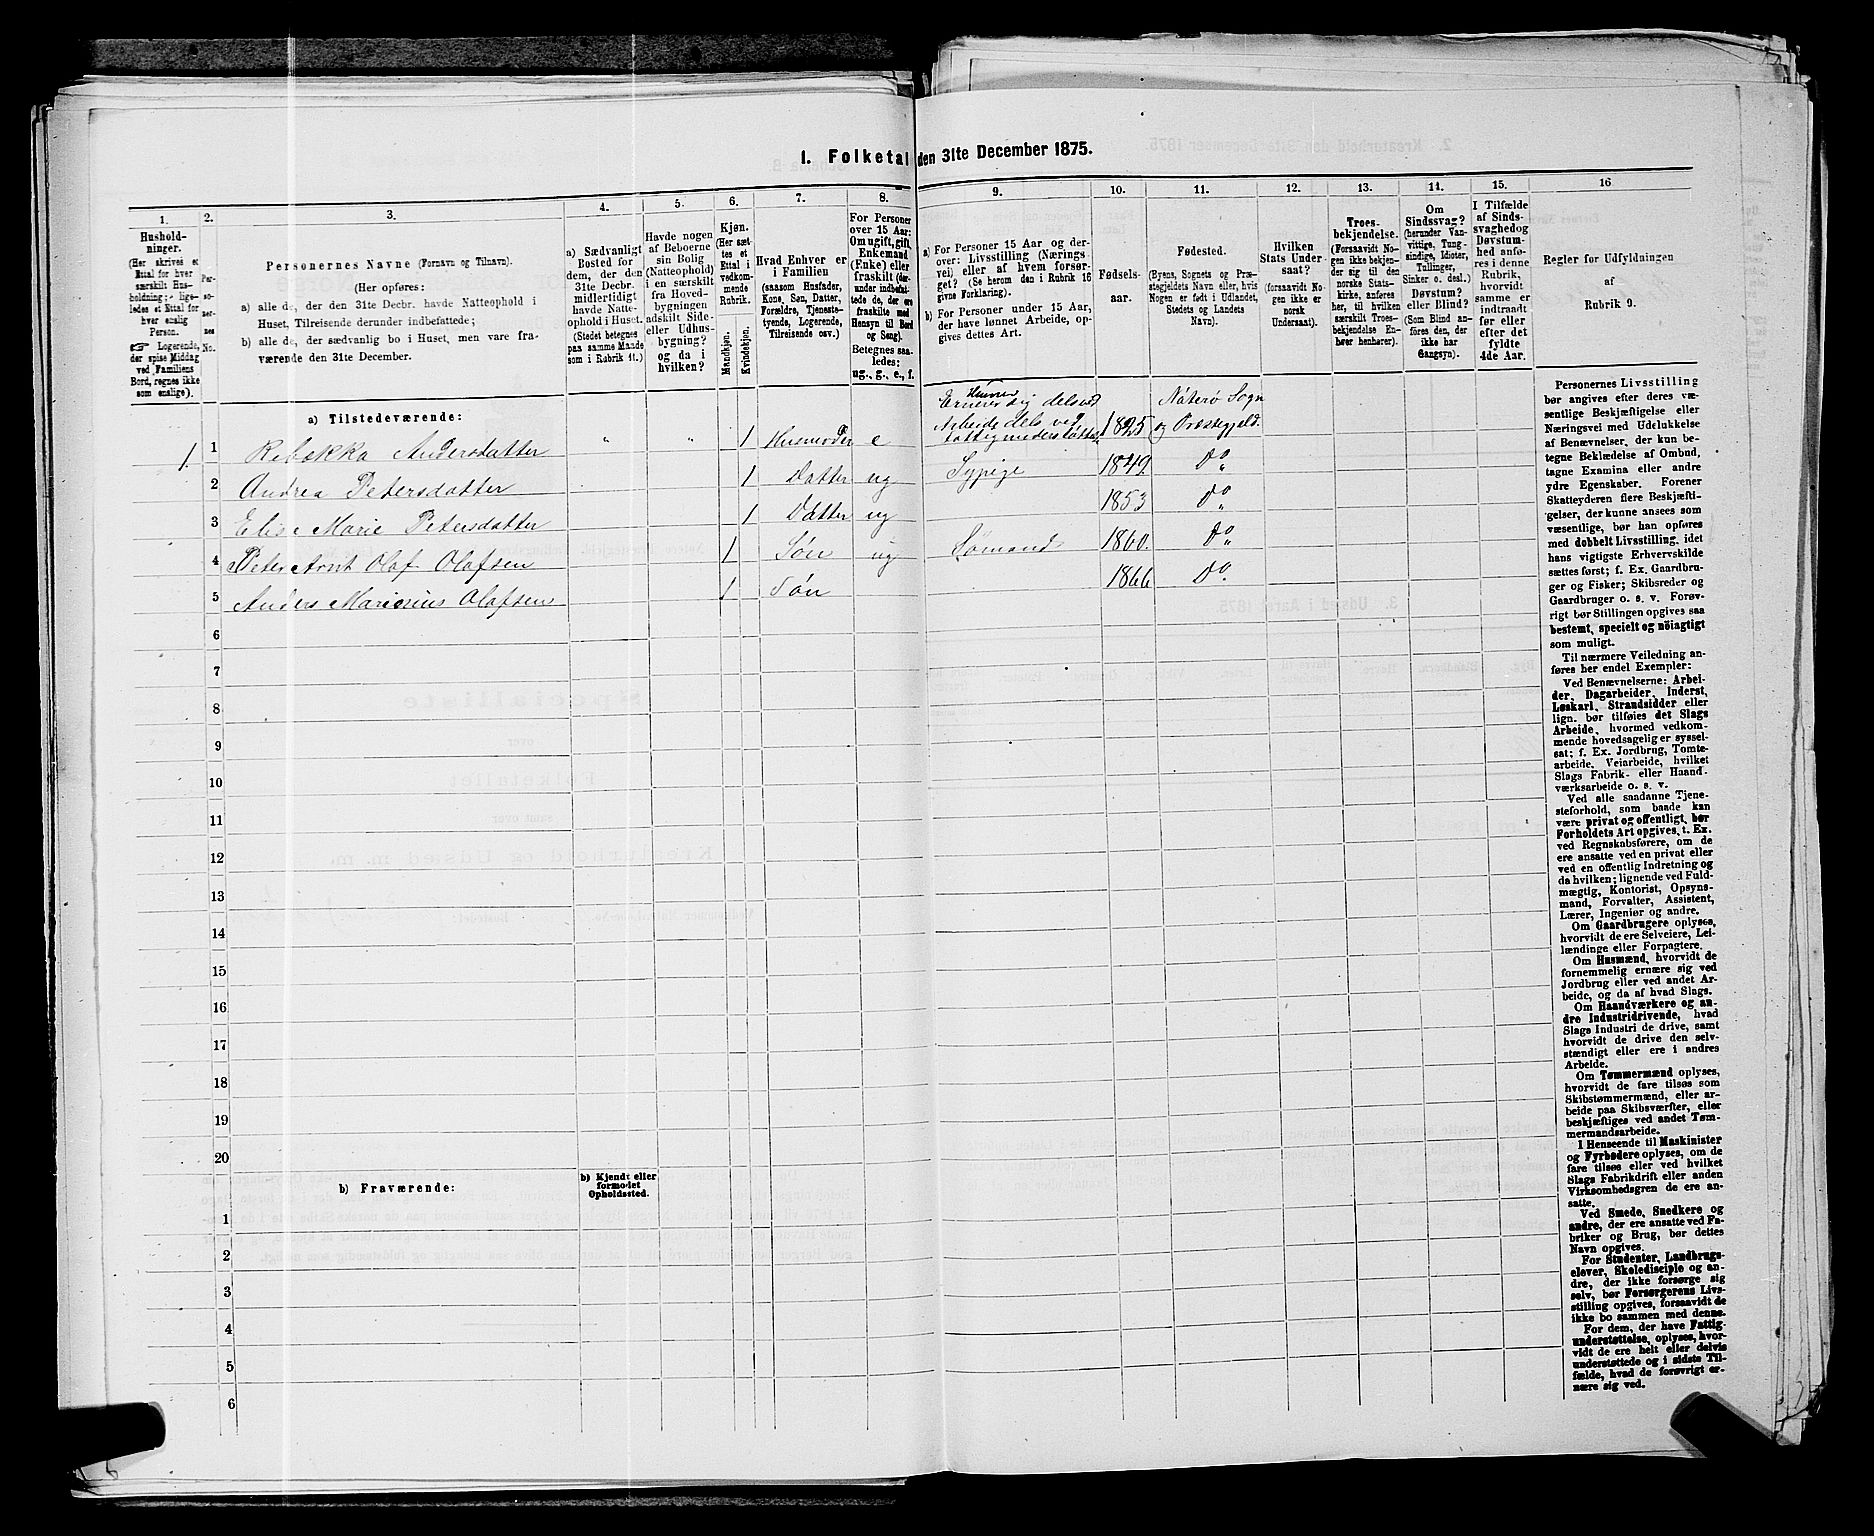 1. Folketal den 31te December 1875.
1. 2. 3. 4. 5. 6. 7. 8. 9. 10. 11. 12. 13. 14. 15. 16
Hushold-
ninger.
(Her skrives et
Ettal for hver
særskilt Hus-
holdning; lige-
ledes et Ettal for
hver enslig
Person.
☞ Logerende,
der spise Middag
ved Familiens
Bord, regnes ikke
som enslige).
Per-
so-
ner-
nes
No.
Personernes Navne (Fornavn og Tilnavn).
(Her opføres:
a) alle de, der den 31te Decbr. havde Natteophold i
Huset, Tilreisende derunder indbefattede;
b) alle de, der sædvanlig bo i Huset, men vare fra-
værende den 31te December.
a) Sædvanligt
Bosted for
dem, der den
31te Decbr.
midlertidigt
havde Natte-
ophold i Huset.
(Stedet betegnes
paa samme Maade
som i Rubrik 11.)
Havde nogen
af Beboerne
sin Bolig
(Natteophold)
i en særskilt
fra Hoved-
bygningen
adskilt Side-
eller Udhus-
bygning?
og da i
hvilken?
Kjøn.
(Her sæt-
tes et
Ettal i
vedkom-
mende
Rubrik.
Mandkjøn.
Kvindekjøn.
Hvad Enhver er
i Familien
(saasom Husfader,
Kone, Søn, Datter,
Forældre, Tjeneste-
tyende, Logerende,
Tilreisende osv.)
For Personer
over 15 Aar:
Om ugift, gift,
Enkemand
(Enke) eller
fraskilt (der-
under indbefat-
tede de, der ere
fraskilte med
Hensyn til Bord
og Seng).
Betegnes saa-
ledes:
ug., g., e., f.
a) For Personer 15 Aar og der-
over: Livsstilling (Nærings-
vei) eller af hvem forsør-
get? (Se herom den i Rubrik 16
givne Forklaring).
b) For Personer under 15 Aar,
der have lønnet Arbeide, op-
gives dettes Art.
Fødsels-
aar.
Fødested.
(Byens, Sognets og Præ-
stegjeldets Navn eller, hvis
Nogen er født i Udlandet,
Stedets og Landets
Navn).
Hvilken
Stats Under-
saat?
(forsaavidt No-
gen ikke er
norsk
Undersaat).
Troes-
bekjendelse.
(Forsaavidt No-
gen ikke bekjen-
der sig til den
norske Stats-
kirke, anføres
her, til hvilken
særskilt Troes-
bekjendelse En-
hver henhører).
Om
Sindssvag?
(herunder Van-
vittige, Tung-
sindige, Idioter,
Tullinger,
Sinker o. desl.)
Døvstum?
eller Blind?
(Som Blind an-
føres den, der
ikke har
Gangsyn).
I Tilfælde
af Sinds-
svaghed og
Døvstum-
hed anfø-
res i denne
Rubrik,
hvorvidt
samme er
indtraadt
før eller
efter det
fyldte
4de Aar.
Regler for Udfyldningen
af
Rubrik 9.
a) Tilstedeværende:
Husmor
Ernærer sig delsved
Arbeide dels ved
fattigunderstøttelse
Nøterø Sogn
og Præstegjeld.
1 1 Rebekka Andersdatter " " 1 Husmoder e 1825
2 Andrea Petersdatter 1 Datter ug Sypige 1849 Do
3 Elise Marie Petersdatter 1 Datter ug 1853 Do
4 Peter Arnt Olaf Olafsen 1 Søn ug Sømand 1860. Do
5 Anders Marinius Olafsen 1 Søn 1866 Do.
6
7
8
9
10
11
12
13
14
15
16
17
18
19
20
b) Fraværende:
b) Kjendt eller
formodet
Opholdssted.
1
2
3
4
5
6
Personernes Livsstilling
bør angives efter deres væ-
sentlige Beskjæftigelse eller
Næringsvei med Udelukkelse
af Benævnelser, der kun be-
tegne Beklædelse af Ombud,
tagne Examina eller andre
ydre Egenskaber. Forener
Skatteyderen flere Beskjæfti-
gelser, der kunne ansees som
væsentlige, bør han opføres
med dobbelt Livsstilling, idet
hans vigtigste Erhvervskilde
sættes først; f. Ex. Gaardbru-
ger og Fisker; Skibsreder og
Gaardbruger o. s. v. Forøv-
rigt bør Stillingen opgives saa
bestemt, specielt og nöiagtigt
som muligt.
Til nærmere Veiledning an-
føres her endel Exempler:
Ved Benævnelserne: Arbei-
der, Dagarbeider, Inderst,
Løskarl, Strandsidder eller
lign. bør tilføies det Slags
Arbeide, hvormed vedkom-
mende hovedsagelig er syssel-
sat; f. Ex. Jordbrug, Tomte-
arbeide, Veiarbeide, hvilket
Slags Fabrik- eller Haand-
værksarbeide o. s. v.
Ved alle saadanne Tjene-
steforhold, som baade kan
være privat og offentligt, bør
Forholdets Art opgives, t. Ex.
ved Regnskabsførere, om de
ere ansatte ved en privat eller
ved en offentlig Indretning og
da hvilken; lignende ved Fuld-
mægtig, Kontorist, Opsyns-
mand, Forvalter, Assistent,
Lærer, Ingeniør og andre.
Om Gaardbrugere oplyses,
hvorvidt de ere Selveiere, Lei-
lændinge eller Forpagtere.
Om Husmænd, hvorvidt de
fornemmelig ernære sig ved
Jordbrug eller ved andet Ar-
beide, og da af hvad Slags.
Om Haandværkere og an-
dre Industridrivende, hvad
Slags Industri de drive, samt
hvorvidt de drive den selv-
stændigt eller ere i andres
Arbeide.
Om Tømmermænd oplyses,
hvorvidt de fare tilsøs som
Skibstømmermænd, eller ar-
beide paa Skibsværfter, eller
beskjæftiges ved andet Tøm-
mermandsarbeide.
I Henseende til Maskinister
og Fyrbødere oplyses, om de
fare tilsøs eller ved hvilket
Slags Fabrikdrift eller anden
Virksomhedsgren de ere an-
satte.
Ved Smede, Snedkere og
andre, der ere ansatte ved Fa-
briker og Brug, bør dettes
Navn opgives.
For Studenter, Landbrugs-
elever, Skoledisciple og an-
dre, der ikke forsørge sig
selv, bør Forsørgerens Livs-
stilling opgives, forsaavidt de
ikke bo sammen med denne.
For dem, der have Fattig-
understøttelse, oplyses, hvor-
vidt de ere helt eller delvis
understøttede og i sidste Til-
fælde, hvad de forøvrigt er-
nære sig ved.